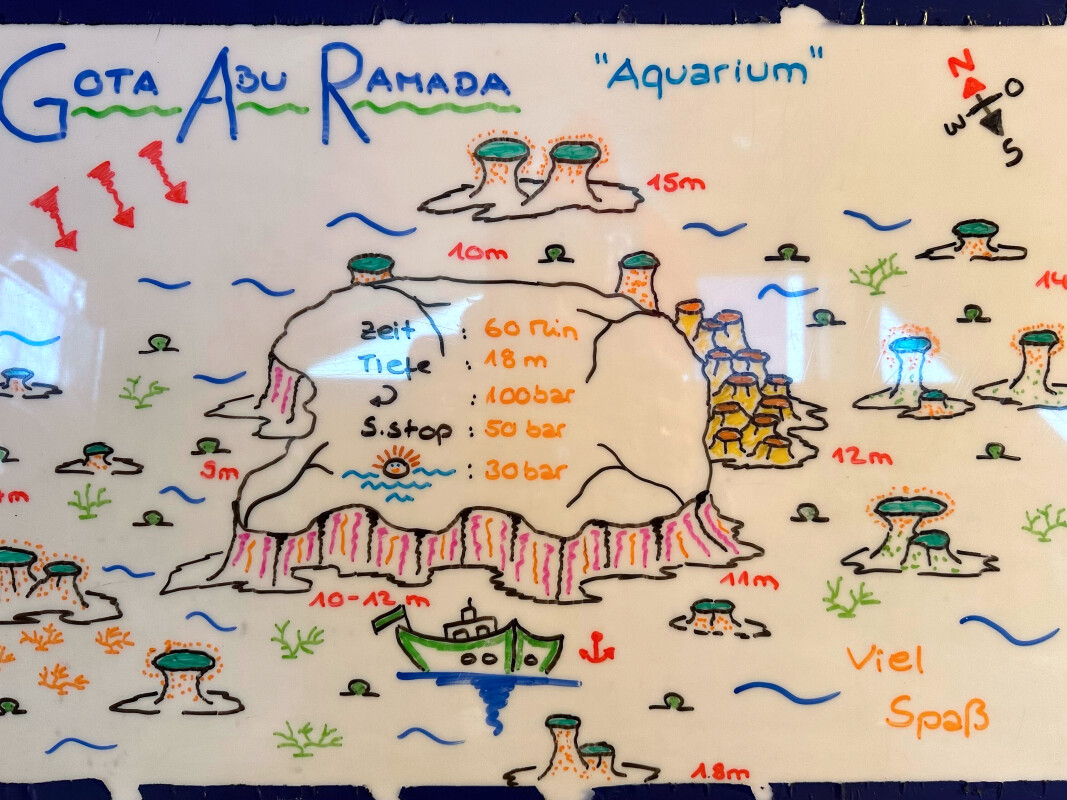 GOTA ABU RAMADA
"Aquarium"
N
O
W
S
15m
10m
14
Zeit : 60 Min
Tiefe : 18 m
: 100 bar
S.stop : 50 bar
: 30 bar
9m
12m
m
11m
10-12 m
Viel
Spaß
18m